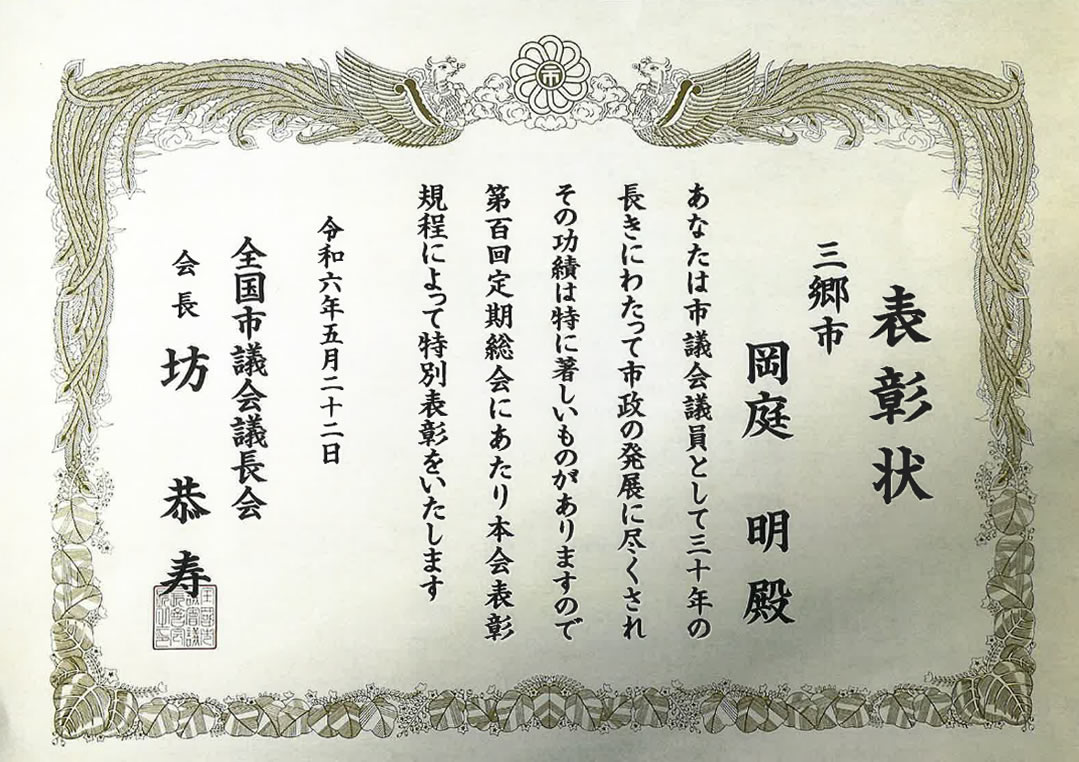 市
表彰状
三郷市
岡庭 明殿
あなたは市議会議員として三十年の
長きにわたって市政の発展に尽くされ
その功績は特に著しいものがありますので
第百回定期総会にあたり本会表彰
規程によって特別表彰をいたします
令和六年五月二十二日
全国市議会議長会
会長 坊 恭寿